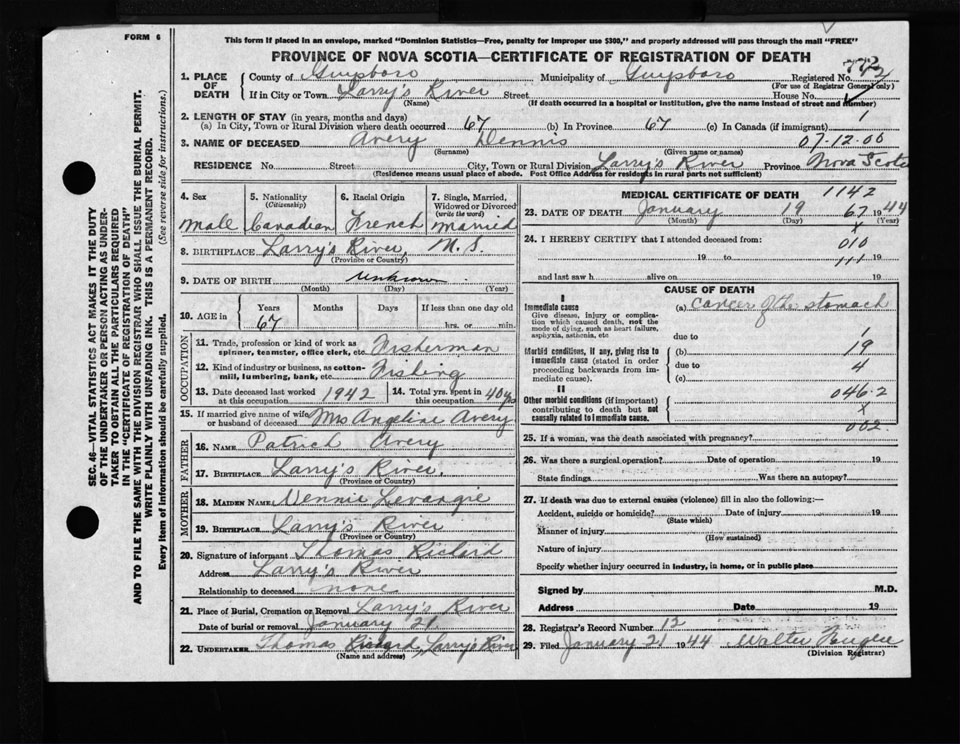 FORM 6
This form if placed in an envelope, marked "Dominion Statistics—Free, penalty for improper use $300," and properly addressed will pass through the mail "FREE"
PROVINCE OF NOVA SCOTIA—CERTIFICATE OF REGISTRATION OF DEATH
SEC. 46—VITAL STATISTICS ACT MAKES IT THE DUTY
OF THE UNDERTAKER OR PERSON ACTING AS UNDER-
TAKER TO OBTAIN ALL THE PARTICULARS REQUIRED
IN THE "CERTIFICATE OF REGISTRATION OF DEATH"
AND TO FILE THE SAME WITH THE DIVISION REGISTRAR WHO SHALL ISSUE THE BURIAL PERMIT.
WRITE PLAINLY WITH UNFADING INK. THIS IS A PERMANENT RECORD.
Every item of information should be carefully supplied. (See reverse side for instructions.)
1. PLACE OF DEATH
County of Guysboro Municipality of Guysboro Registered No.
(For use of Registrar General only)
If in City or Town Larry's River Street House No.
(Name) (If death occurred in a hospital or institution, give the name instead of street and number)
2. LENGTH OF STAY (in years, months and days) 1
(a) In City, Town or Rural Division where death occurred 67 (b) In Province 67 (c) In Canada (if immigrant)
3. NAME OF DECEASED Avery Dennis 07-12.00
(Surname) (Given name or names)
RESIDENCE No. Street City, Town or Rural Division Larry's River Province Nova Scotia
(Residence means usual place of abode. Post Office Address for residents in rural parts not sufficient)
4. Sex
Male
5. Nationality
(Citizenship)
Canadian
6. Racial Origin
French
7. Single, Married,
Widowed or Divorced
(write the word)
Married
8. BIRTHPLACE Larry's River, N.S.
(Province or Country)
9. DATE OF BIRTH unknown
(Month) (Day) (Year)
10. AGE in
Years Months Days If less than one day old
67 hrs. or min.
OCCUPATION
11. Trade, profession or kind of work as
spinner, teamster, office clerk, etc. Fisherman
12. Kind of industry or business, as cotton-
mill, lumbering, bank, etc. Fishing
13. Date deceased last worked
at this occupation 1942
14. Total yrs. spent in
this occupation 40 yrs
15. If married give name of wife
or husband of deceased Mrs Angeline Avery
FATHER
16. NAME Patrick Avery
17. BIRTHPLACE Larry's River.
(Province or Country)
MOTHER
18. MAIDEN NAME Levangie
19. BIRTHPLACE Larry's River
(Province or Country)
20. Signature of informant Thomas Richard
Address Larry's River
Relationship to deceased none
21. Place of Burial, Cremation or Removal Larry's River
Date of burial or removal January 21
22. UNDERTAKER Thomas Larry's River
(Name and address)
MEDICAL CERTIFICATE OF DEATH 1142
23. DATE OF DEATH January 19 67 1944
(Month) (Day) (Year)
x
24. I HEREBY CERTIFY that I attended deceased from: 010
19 to 111 19
and last saw h alive on 19
CAUSE OF DEATH
I
Immediate cause
Give disease, injury or complica-
tion which caused death, not the
mode of dying, such as heart failure,
asphyxia, asthenia, etc
(a) cancer of the stomach
due to 1
Morbid conditions, if any, giving rise to
immediate cause (stated in order
proceeding backwards from im-
mediate cause).
(b) 19
due to 4
(c)
II
Other morbid conditions (if important)
contributing to death but not
causally related to immediate cause.
046.2
x
002.
25. If a woman, was the death associated with pregnancy?
26. Was there a surgical operation? Date of operation 19
State findings Was there an autopsy?
27. If death was due to external causes (violence) fill in also the following:—
Accident, suicide or homicide? Date of injury 19
(State which)
Manner of injury
(How sustained)
Nature of injury
Specify whether injury occurred in industry, in home, or in public place
Signed by M.D.
Address Date 19
28. Registrar's Record Number 12
29. Filed January 21 1944 Walter
(Division Registrar)